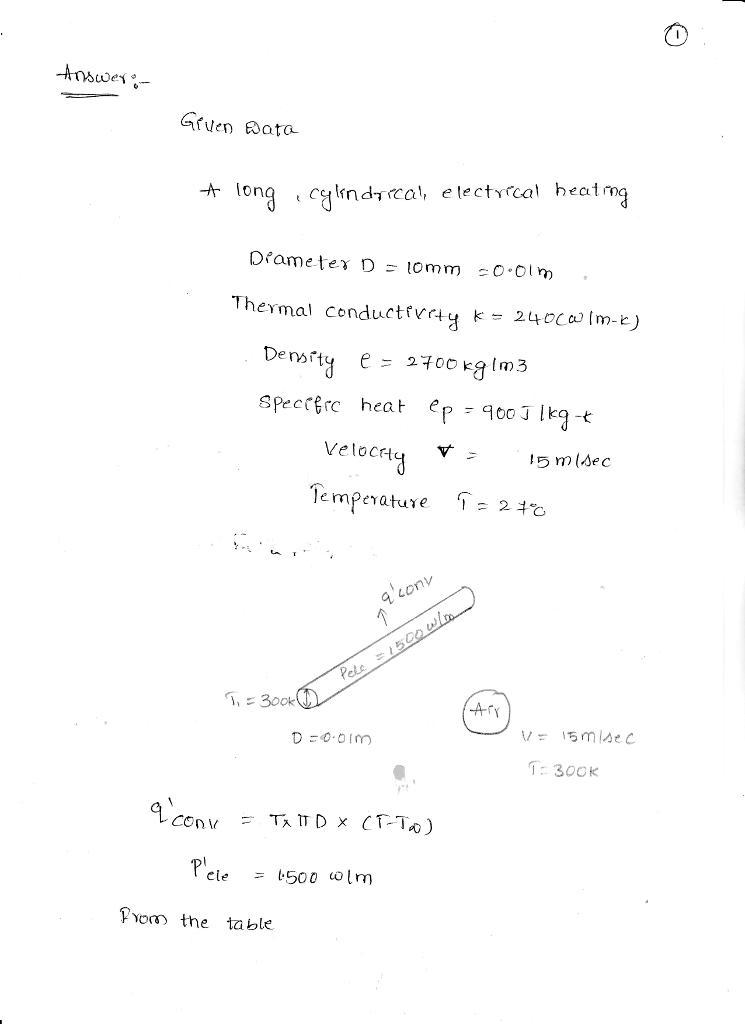 1
Answer:-
Given Data
A long, cylindrical, electrical heating
Diameter D = 10mm = 0.01m
Thermal conductivity k = 240(w/m-k)
Density e = 2700 kg/m3
Specific heat ep = 900 J/kg-k
Velocity V = 15 m/sec
Temperature T = 27°C
q'conv
Pele = 1500 w/m
T1 = 300k
D = 0.01m
Air
V = 15m/sec
T = 300K
q'conv = T x π D x (T-T∞)
P'ele = 1500 w/m
From the table